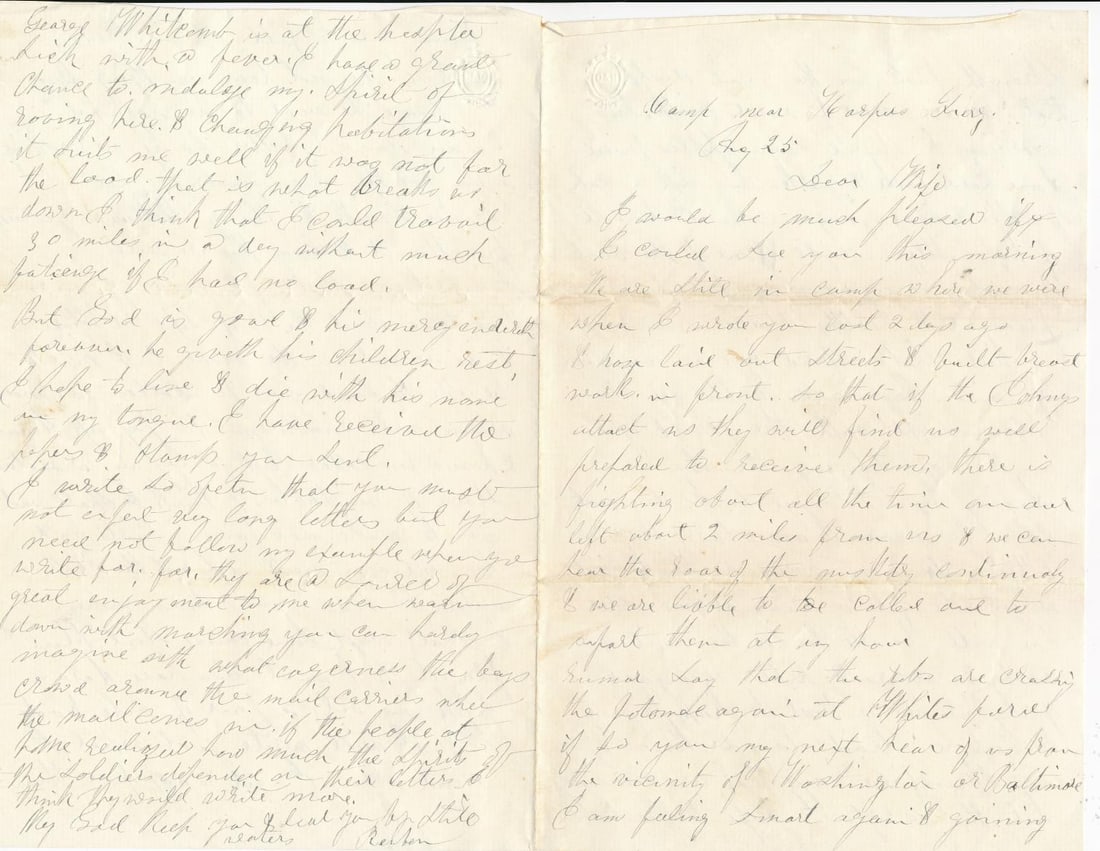 Camp near Harpers Fery.
Aug 25
Dear Wife
I would be much pleased if
I could see you this morning
We are still in camp where we were
when I wrote you last 2 days ago
& have laid out streets & built breast
works in front. so that if the Johnys
attact us they will find us well
prepared to receive them, there is
fighting about all the time on our
left about 2 miles from us & we can
hear the roar of the muskitry continualy
& we are liable to be called out to
suport them at any hour
rumor say that the rebs are crossing
the potomac again at Whites ford
if so you may next hear of us from
the vicinity of Washington or Baltimore
I am feeling smart again & gaining
George Whitcomb is at the hospital
sick with a fever. I have a grand
chance to indulge my spirit of
roving here. & changing habitations
it suits me well if it was not for
the load. that is what breaks us
down I think that I could travail
30 miles in a day without much
fatiuge if I had no load.
But God is good & his mercy endureth
forever. he giveth his children rest,
I hope to live & die with his name
on my tongue. I have received the
papers & stamps you sent.
I write so ofetn that you must
not expect very long letters but you
need not follow my example when you
write for. for, they are a source of
great enjoyment to me when warn
down with marching you can hardly
imagine with what eagerness the boys
crowd around the mail carriers when
the mail comes in. if the people at
home realized how much the spirits of
the soldiers depended on their letters I
think they would write more.
May God keep you &